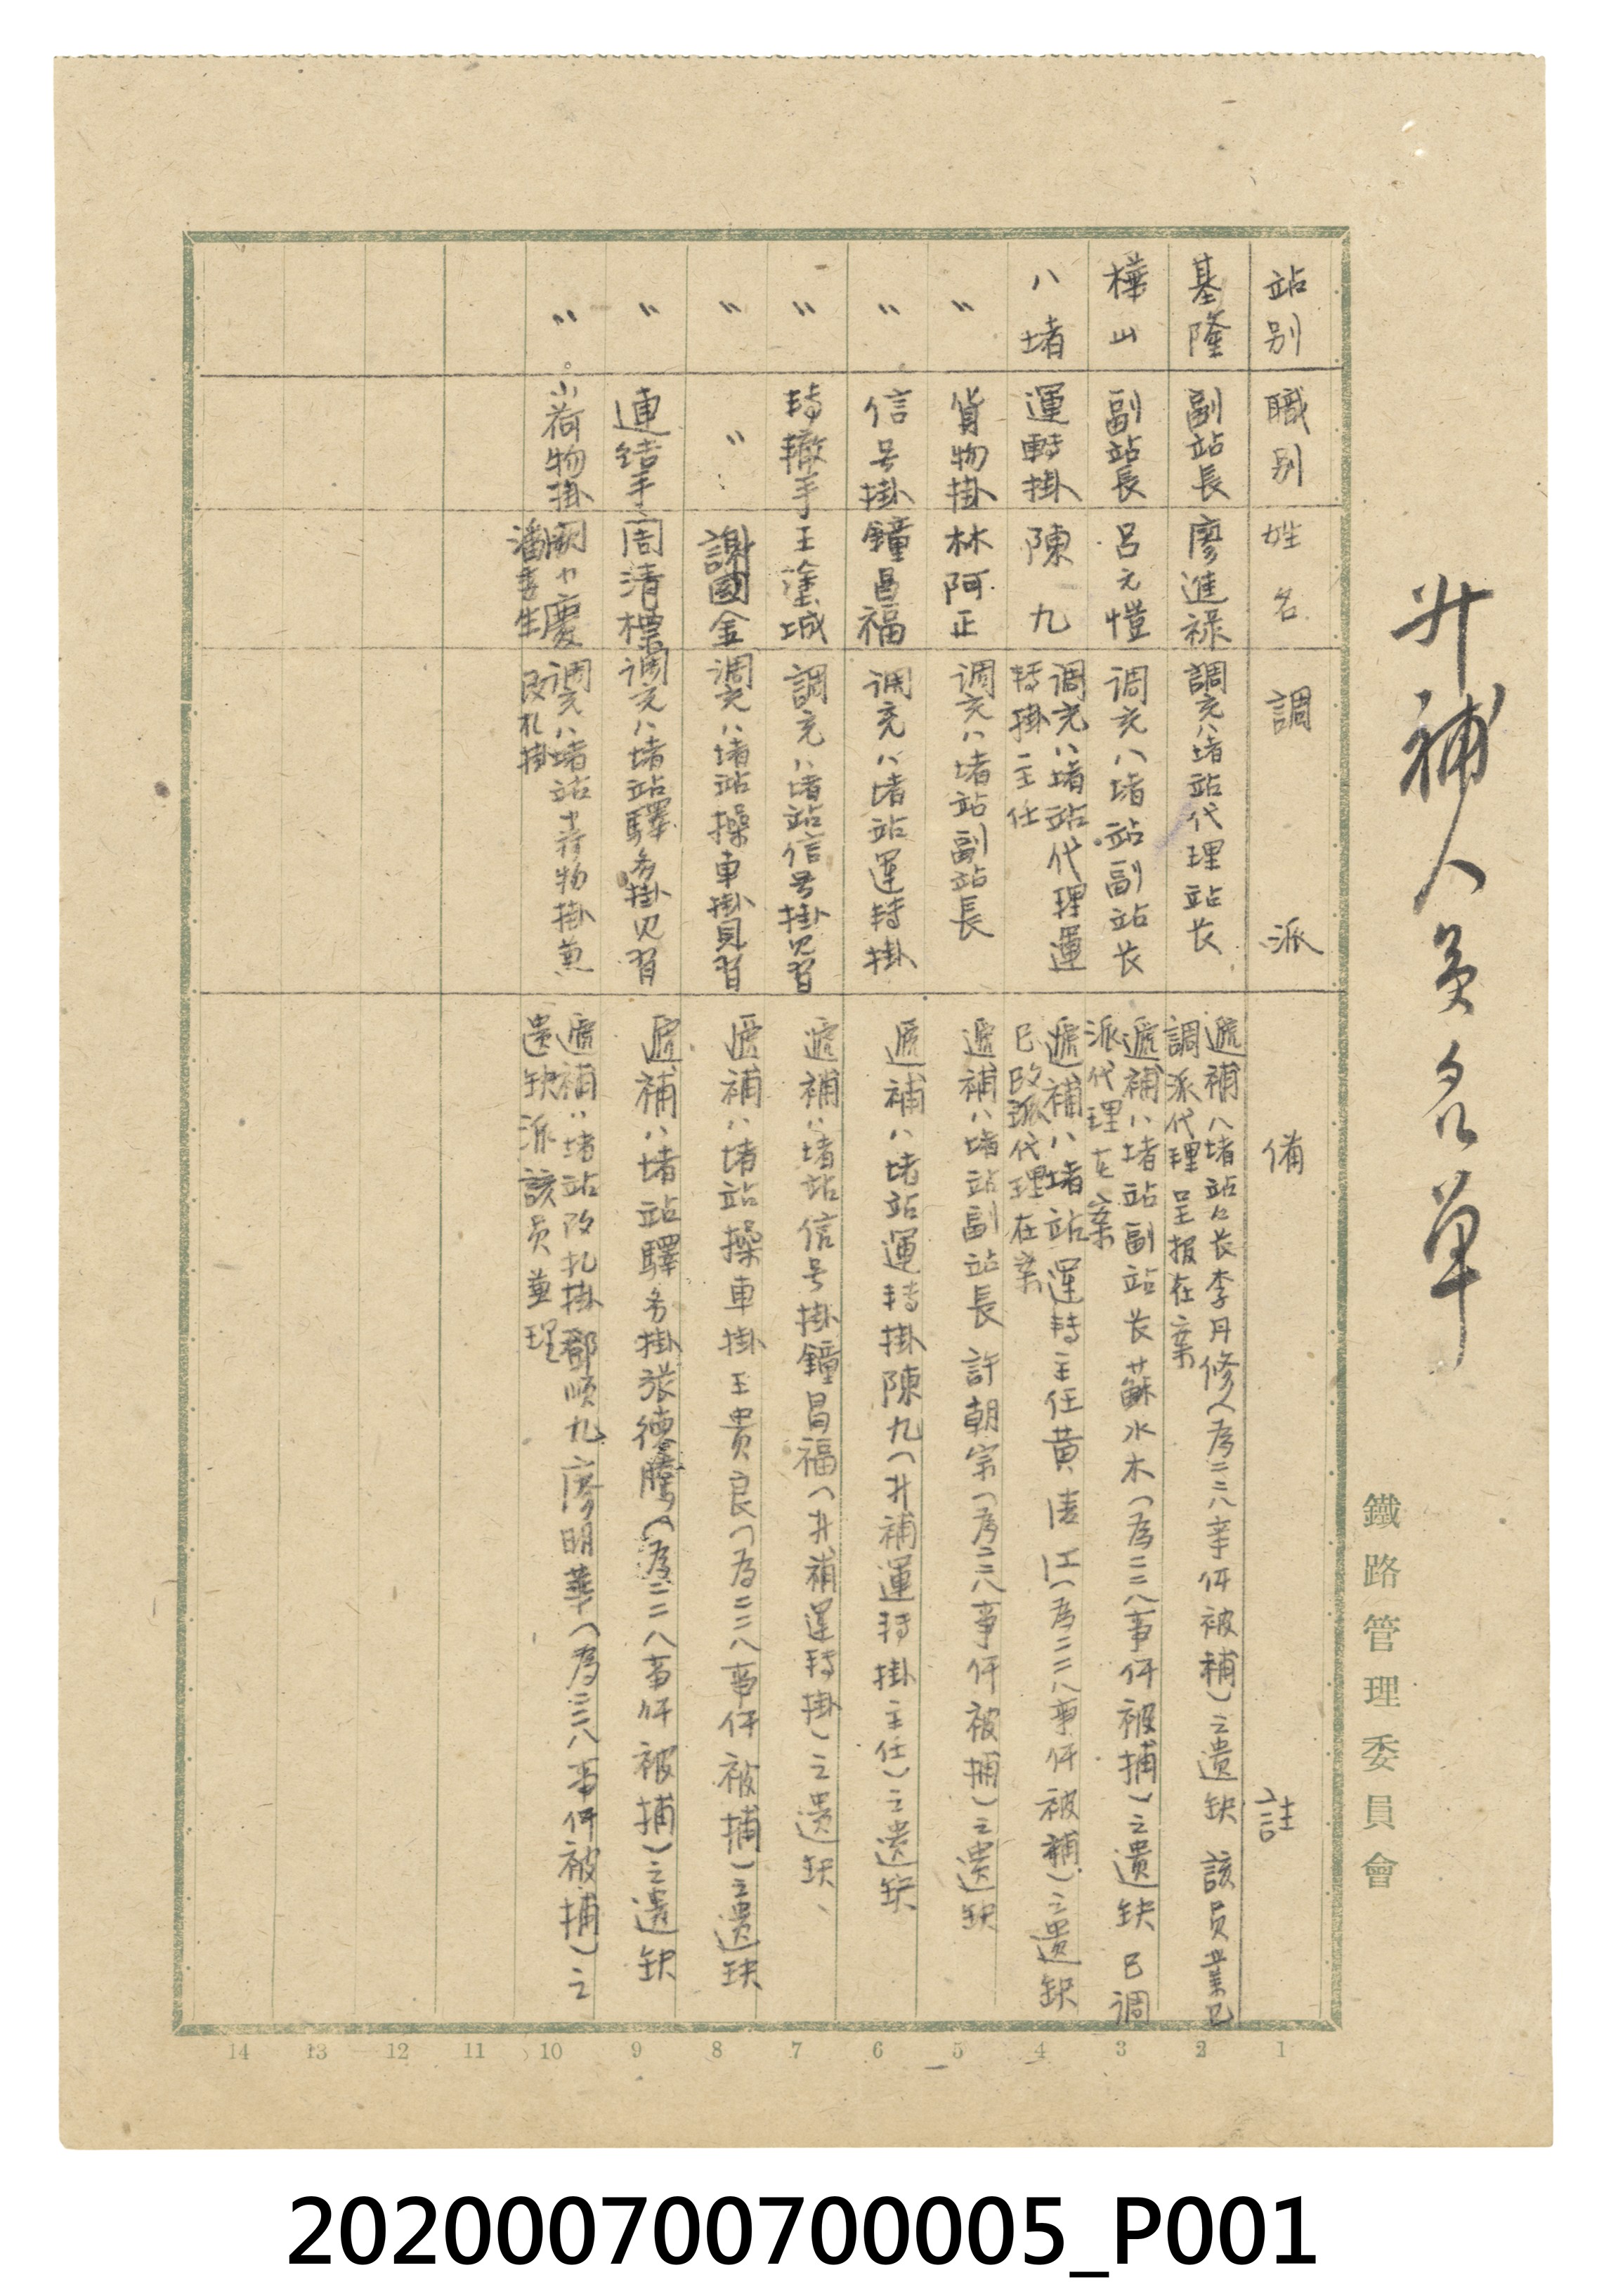 升補人員名單
鐵路管理委員會
站別 職別 姓名 調派 備註
基隆 副站長 廖進祿 調充八堵站代理站长 遞補八堵站々长李丹修(為二二八事件被補)之遺缺 該员業已
調派代理呈报在案
樺山 副站長 呂元愷 调充八堵站副站长 遞補八堵站副站长蘇水木(為二二八事件被捕)之遺缺 已调
派代理在案
八堵 運轉掛 陳九 调充八堵站代理運 遞補八堵站運轉主任黃清江(為二二八事件被補)之遺缺
轉掛主任 已改派代理在案
〃 貨物掛 林阿正 调充八堵站副站長 遞補八堵站副站長 許朝宗(為二二八事件被捕)之遺缺
〃 信号掛 鐘昌福 调充八堵站運轉掛 遞補八堵站運轉掛陳九(升補運轉掛主任)之遺缺
〃 轉轍手 王塗城 調充八堵站信号掛见習 遞補八堵站信号掛鐘昌福(升補運轉掛)之遺缺、
〃 〃 謝國金 调充八堵站操車掛見習 遞補八堵站操車掛王貴良(為二二八事件被捕)之遺缺
〃 連结手 周清標 调充八堵站驛务掛见習 遞補八堵站驛务掛张德騰(為二二八事件被捕)之遺缺
〃 小荷物掛 慶 调充八堵站小荷物掛兼 遞補八堵站改札掛鄧順九廖明華(為二二八事件被捕)之
潘喜生 改札掛 遺缺派該员兼理
1 2 3 4 5 6 7 8 9 10 11 12 13 14
202000700700005_P001